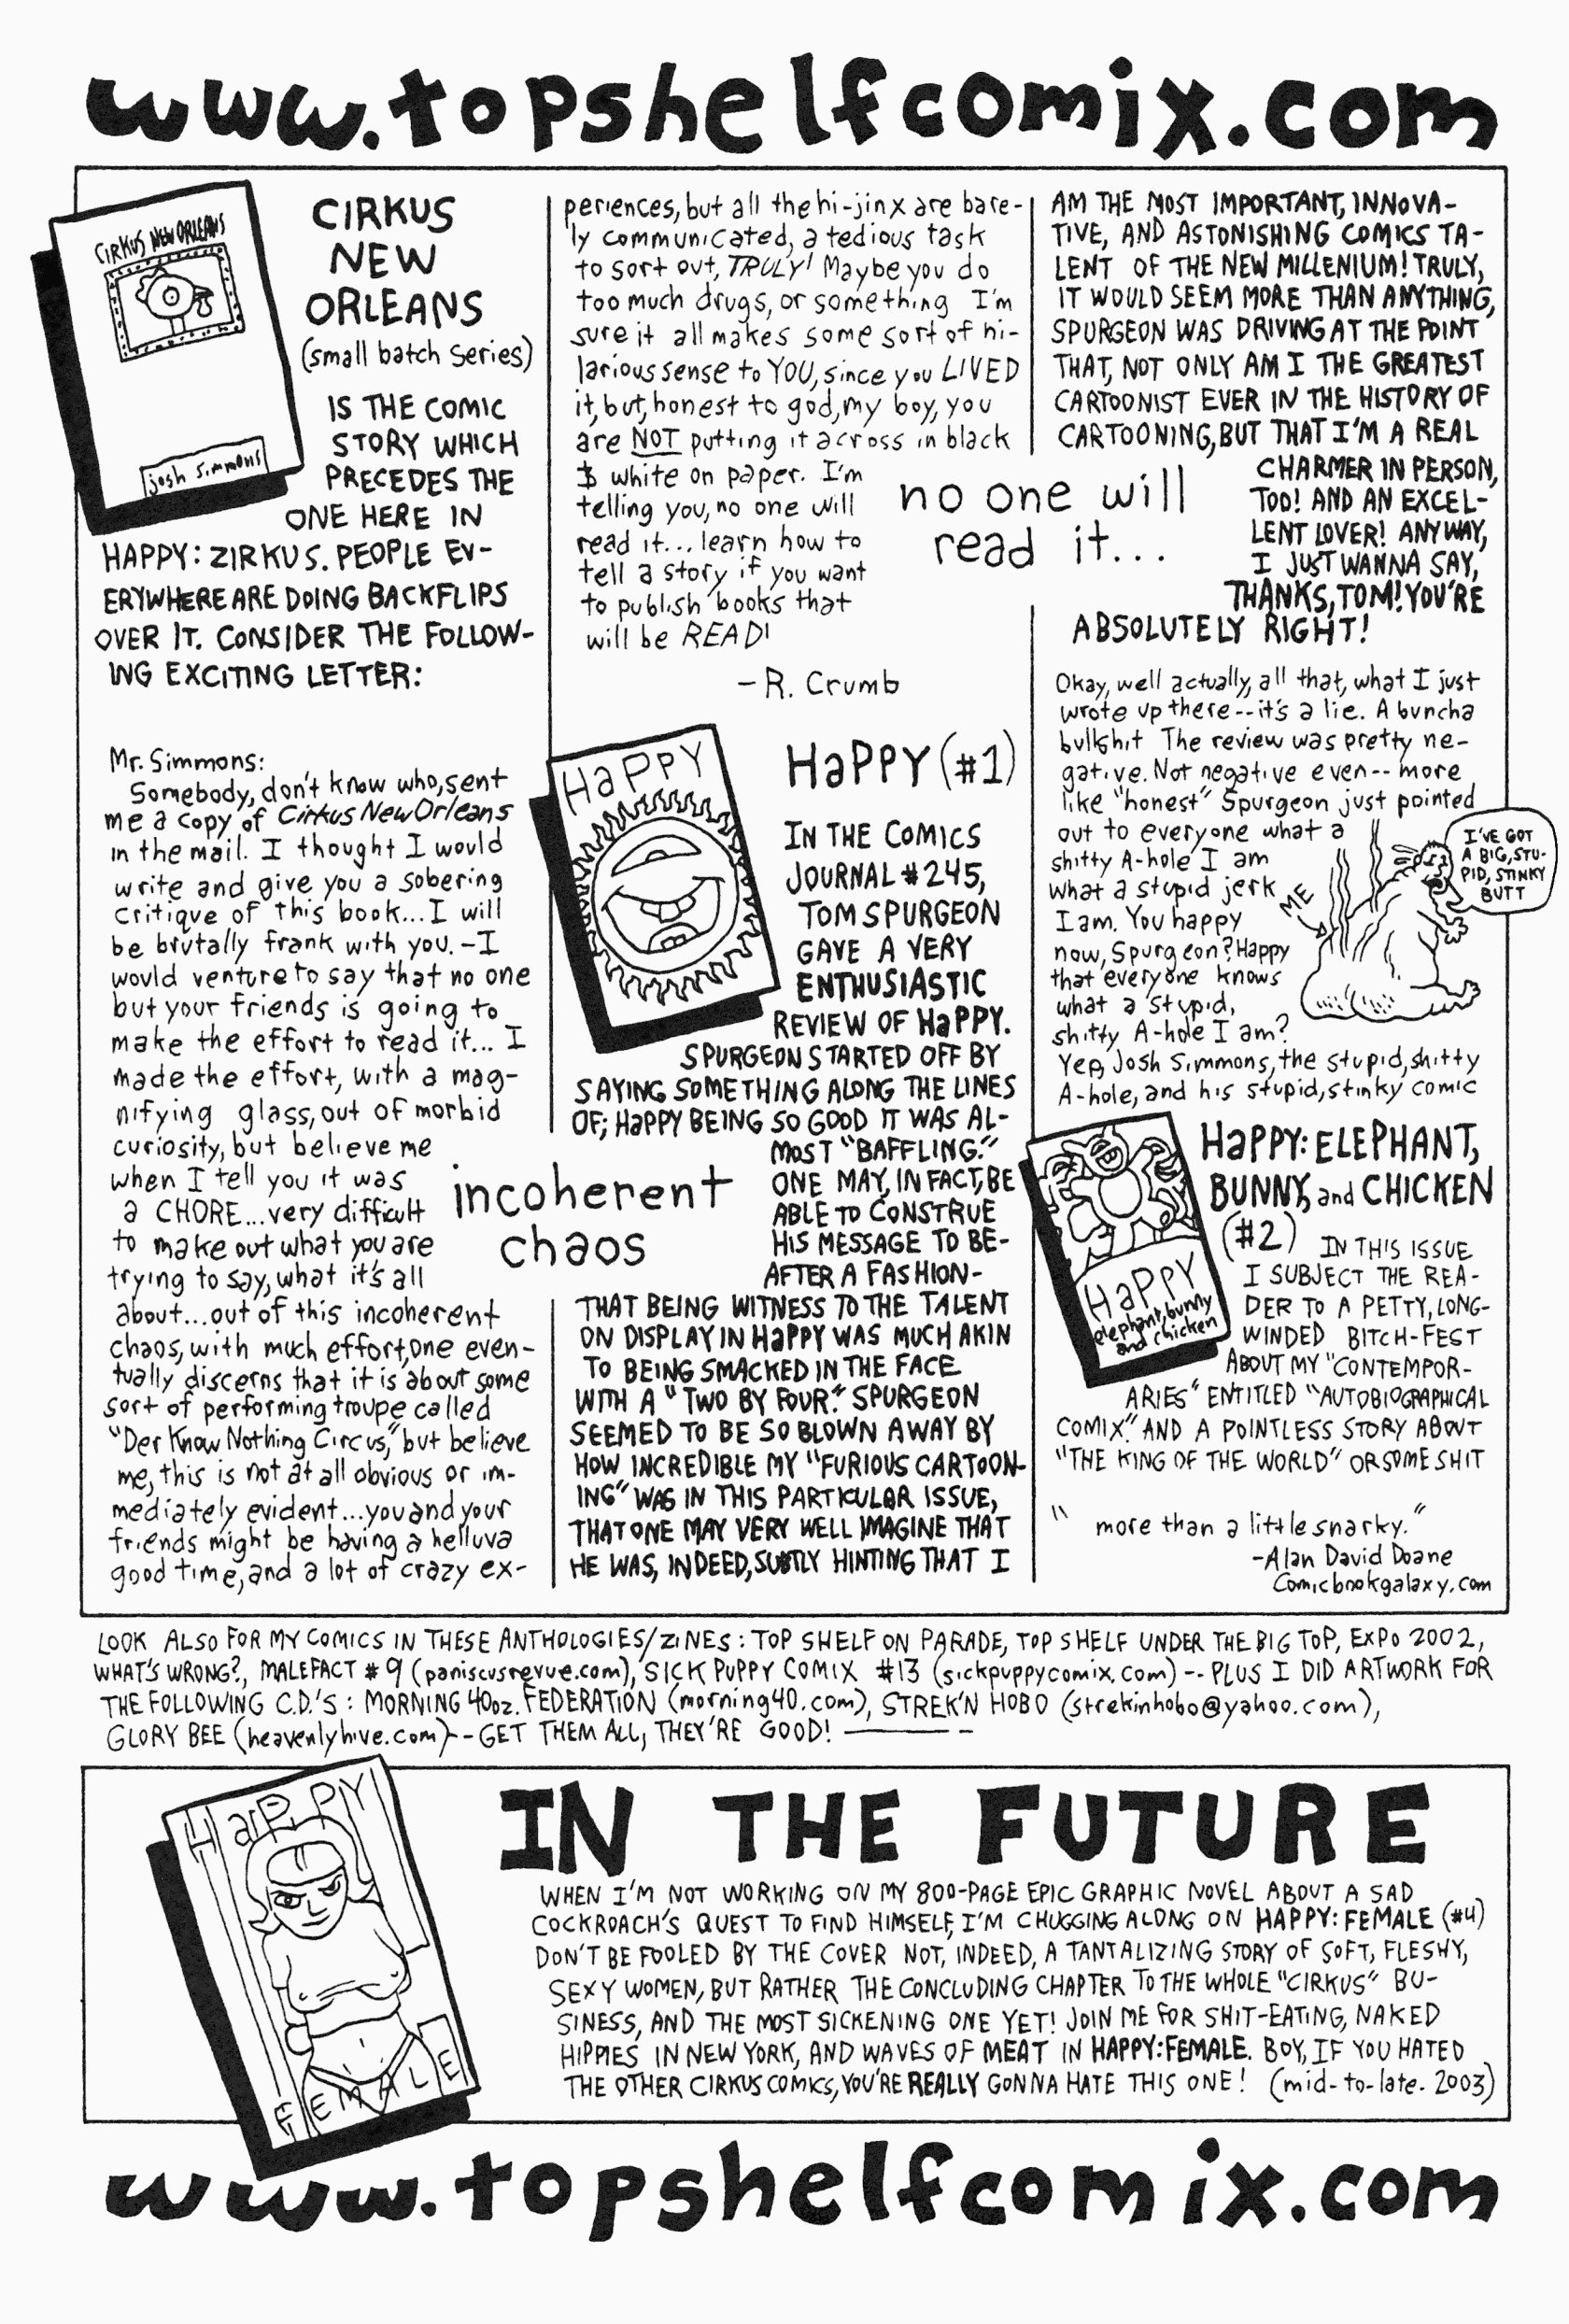 www.topshelfcomix.com
CIRKUS NEW ORLEANS
josh simmons
CIRKUS
NEW
ORLEANS
(small batch series)
IS THE COMIC
STORY WHICH
PRECEDES THE
ONE HERE IN
HAPPY: ZIRKUS. PEOPLE EV-
ERYWHERE ARE DOING BACKFLIPS
OVER IT. CONSIDER THE FOLLOW-
ING EXCITING LETTER:
Mr. Simmons:
Somebody, don't know who, sent
me a copy of Cirkus New Orleans
in the mail. I thought I would
write and give you a sobering
critique of this book... I will
be brutally frank with you. - I
would venture to say that no one
but your friends is going to
make the effort to read it... I
made the effort, with a mag-
nifying glass, out of morbid
curiosity, but believe me
when I tell you it was
a CHORE... very difficult
to make out what you are
trying to say, what it's all
about... out of this incoherent
chaos, with much effort, one even-
tually discerns that it is about some
sort of performing troupe called
"Der Know Nothing Circus," but believe
me, this is not at all obvious or im-
mediately evident... you and your
friends might be having a helluva
good time, and a lot of crazy ex-
incoherent
chaos
periences, but all the hi-jinx are bare-
ly communicated, a tedious task
to sort out, TRULY! Maybe you do
too much drugs, or something I'm
sure it all makes some sort of hi-
larious sense to YOU, since you LIVED
it, but, honest to god, my boy, you
are NOT putting it across in black
& white on paper. I'm
telling you, no one will
read it... learn how to
tell a story if you want
to publish books that
will be READ!
- R. Crumb
no one will
read it...
HaPPY
HaPPY (#1)
IN THE COMICS
JOURNAL #245,
TOM SPURGEON
GAVE A VERY
ENTHUSIASTIC
REVIEW OF HaPPY.
SPURGEON STARTED OFF BY
SAYING SOMETHING ALONG THE LINES
OF; HaPPY BEING SO GOOD IT WAS AL-
MOST "BAFFLING."
ONE MAY, IN FACT, BE
ABLE TO CONSTRUE
HIS MESSAGE TO BE-
AFTER A FASHION-
THAT BEING WITNESS TO THE TALENT
ON DISPLAY IN HaPPY WAS MUCH AKIN
TO BEING SMACKED IN THE FACE
WITH A "TWO BY FOUR." SPURGEON
SEEMED TO BE SO BLOWN AWAY BY
HOW INCREDIBLE MY "FURIOUS CARTOON-
ING" WAS IN THIS PARTICULAR ISSUE,
THAT ONE MAY VERY WELL IMAGINE THAT
HE WAS, INDEED, SUBTLY HINTING THAT I
AM THE MOST IMPORTANT, INNOVA-
TIVE, AND ASTONISHING COMICS TA-
LENT OF THE NEW MILLENIUM! TRULY,
IT WOULD SEEM MORE THAN ANYTHING,
SPURGEON WAS DRIVING AT THE POINT
THAT, NOT ONLY AM I THE GREATEST
CARTOONIST EVER IN THE HISTORY OF
CARTOONING, BUT THAT I'M A REAL
CHARMER IN PERSON,
TOO! AND AN EXCEL-
LENT LOVER! ANYWAY,
I JUST WANNA SAY,
THANKS, TOM! YOU'RE
ABSOLUTELY RIGHT!
Okay, well actually, all that, what I just
wrote up there--it's a lie. A buncha
bullshit The review was pretty ne-
gative. Not negative even-- more
like "honest" Spurgeon just pointed
out to everyone what a
shitty A-hole I am
what a stupid jerk
I am. You happy
now, Spurgeon? Happy
that everyone knows
what a stupid,
shitty A-hole I am?
Yep, Josh Simmons, the stupid, shitty
A-hole, and his stupid, stinky comic
ME
I'VE GOT
A BIG, STU-
PID, STINKY
BUTT
HaPPY
elephant, bunny
and chicken
HaPPY: ELEPHANT,
BUNNY, and CHICKEN
(#2) IN THIS ISSUE
I SUBJECT THE REA-
DER TO A PETTY, LONG-
WINDED BITCH-FEST
ABOUT MY "CONTEMPOR-
ARIES" ENTITLED "AUTOBIOGRAPHICAL
COMIX." AND A POINTLESS STORY ABOUT
"THE KING OF THE WORLD" OR SOME SHIT
" more than a little snarky."
-Alan David Doane
Comicbookgalaxy.com
LOOK ALSO FOR MY COMICS IN THESE ANTHOLOGIES/ZINES: TOP SHELF ON PARADE, TOP SHELF UNDER THE BIG TOP, EXPO 2002,
WHAT'S WRONG?, MALEFACT #9 (paniscusrevue.com), SICK PUPPY COMIX #13 (sickpuppycomix.com) -- PLUS I DID ARTWORK FOR
THE FOLLOWING C.D.'S: MORNING 40oz. FEDERATION (morning40.com), STREK'N HOBO (strekinhobo@yahoo.com),
GLORY BEE (heavenlyhive.com)--GET THEM ALL, THEY'RE GOOD! ——— -
HaPPY
FEMALE
IN THE FUTURE
WHEN I'M NOT WORKING ON MY 800-PAGE EPIC GRAPHIC NOVEL ABOUT A SAD
COCKROACH'S QUEST TO FIND HIMSELF, I'M CHUGGING ALONG ON HAPPY: FEMALE (#4)
DON'T BE FOOLED BY THE COVER NOT, INDEED, A TANTALIZING STORY OF SOFT, FLESHY,
SEXY WOMEN, BUT RATHER THE CONCLUDING CHAPTER TO THE WHOLE "CIRKUS" BU-
SINESS, AND THE MOST SICKENING ONE YET! JOIN ME FOR SHIT-EATING, NAKED
HIPPIES IN NEW YORK, AND WAVES OF MEAT IN HAPPY: FEMALE. BOY, IF YOU HATED
THE OTHER CIRKUS COMICS, YOU'RE REALLY GONNA HATE THIS ONE! (mid-to-late. 2003)
www.topshelfcomix.com